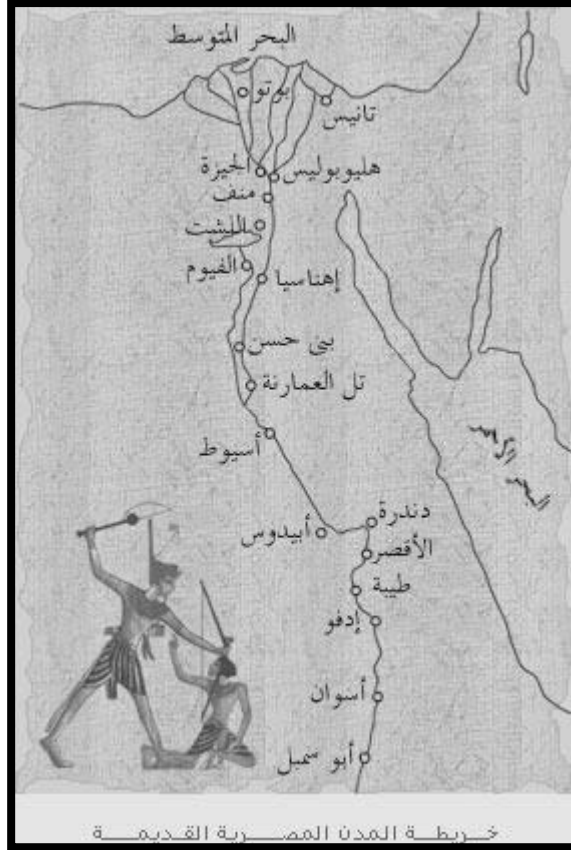 البحر المتوسط
بوتو
تانيس
الجيزة
هليوبوليس
منف
اللشت
الفيوم
إهناسيا
بنى حسن
تل العمارنة
أسيوط
دندرة
أبيدوس
الأقصر
طيبة
إدفو
أسوان
أبو سمبل
خريطة المدن المصرية القديمة